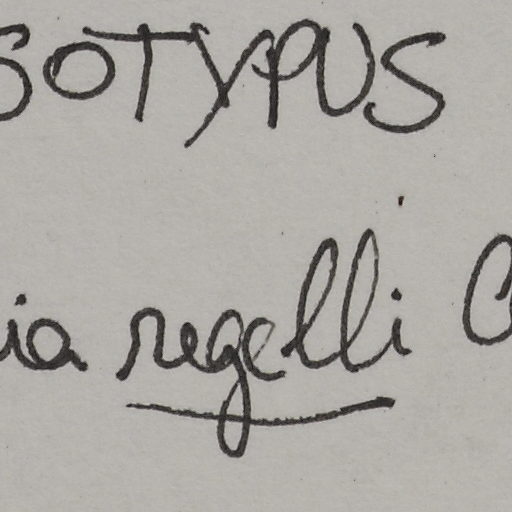 SOTYPUS
ia regelli C